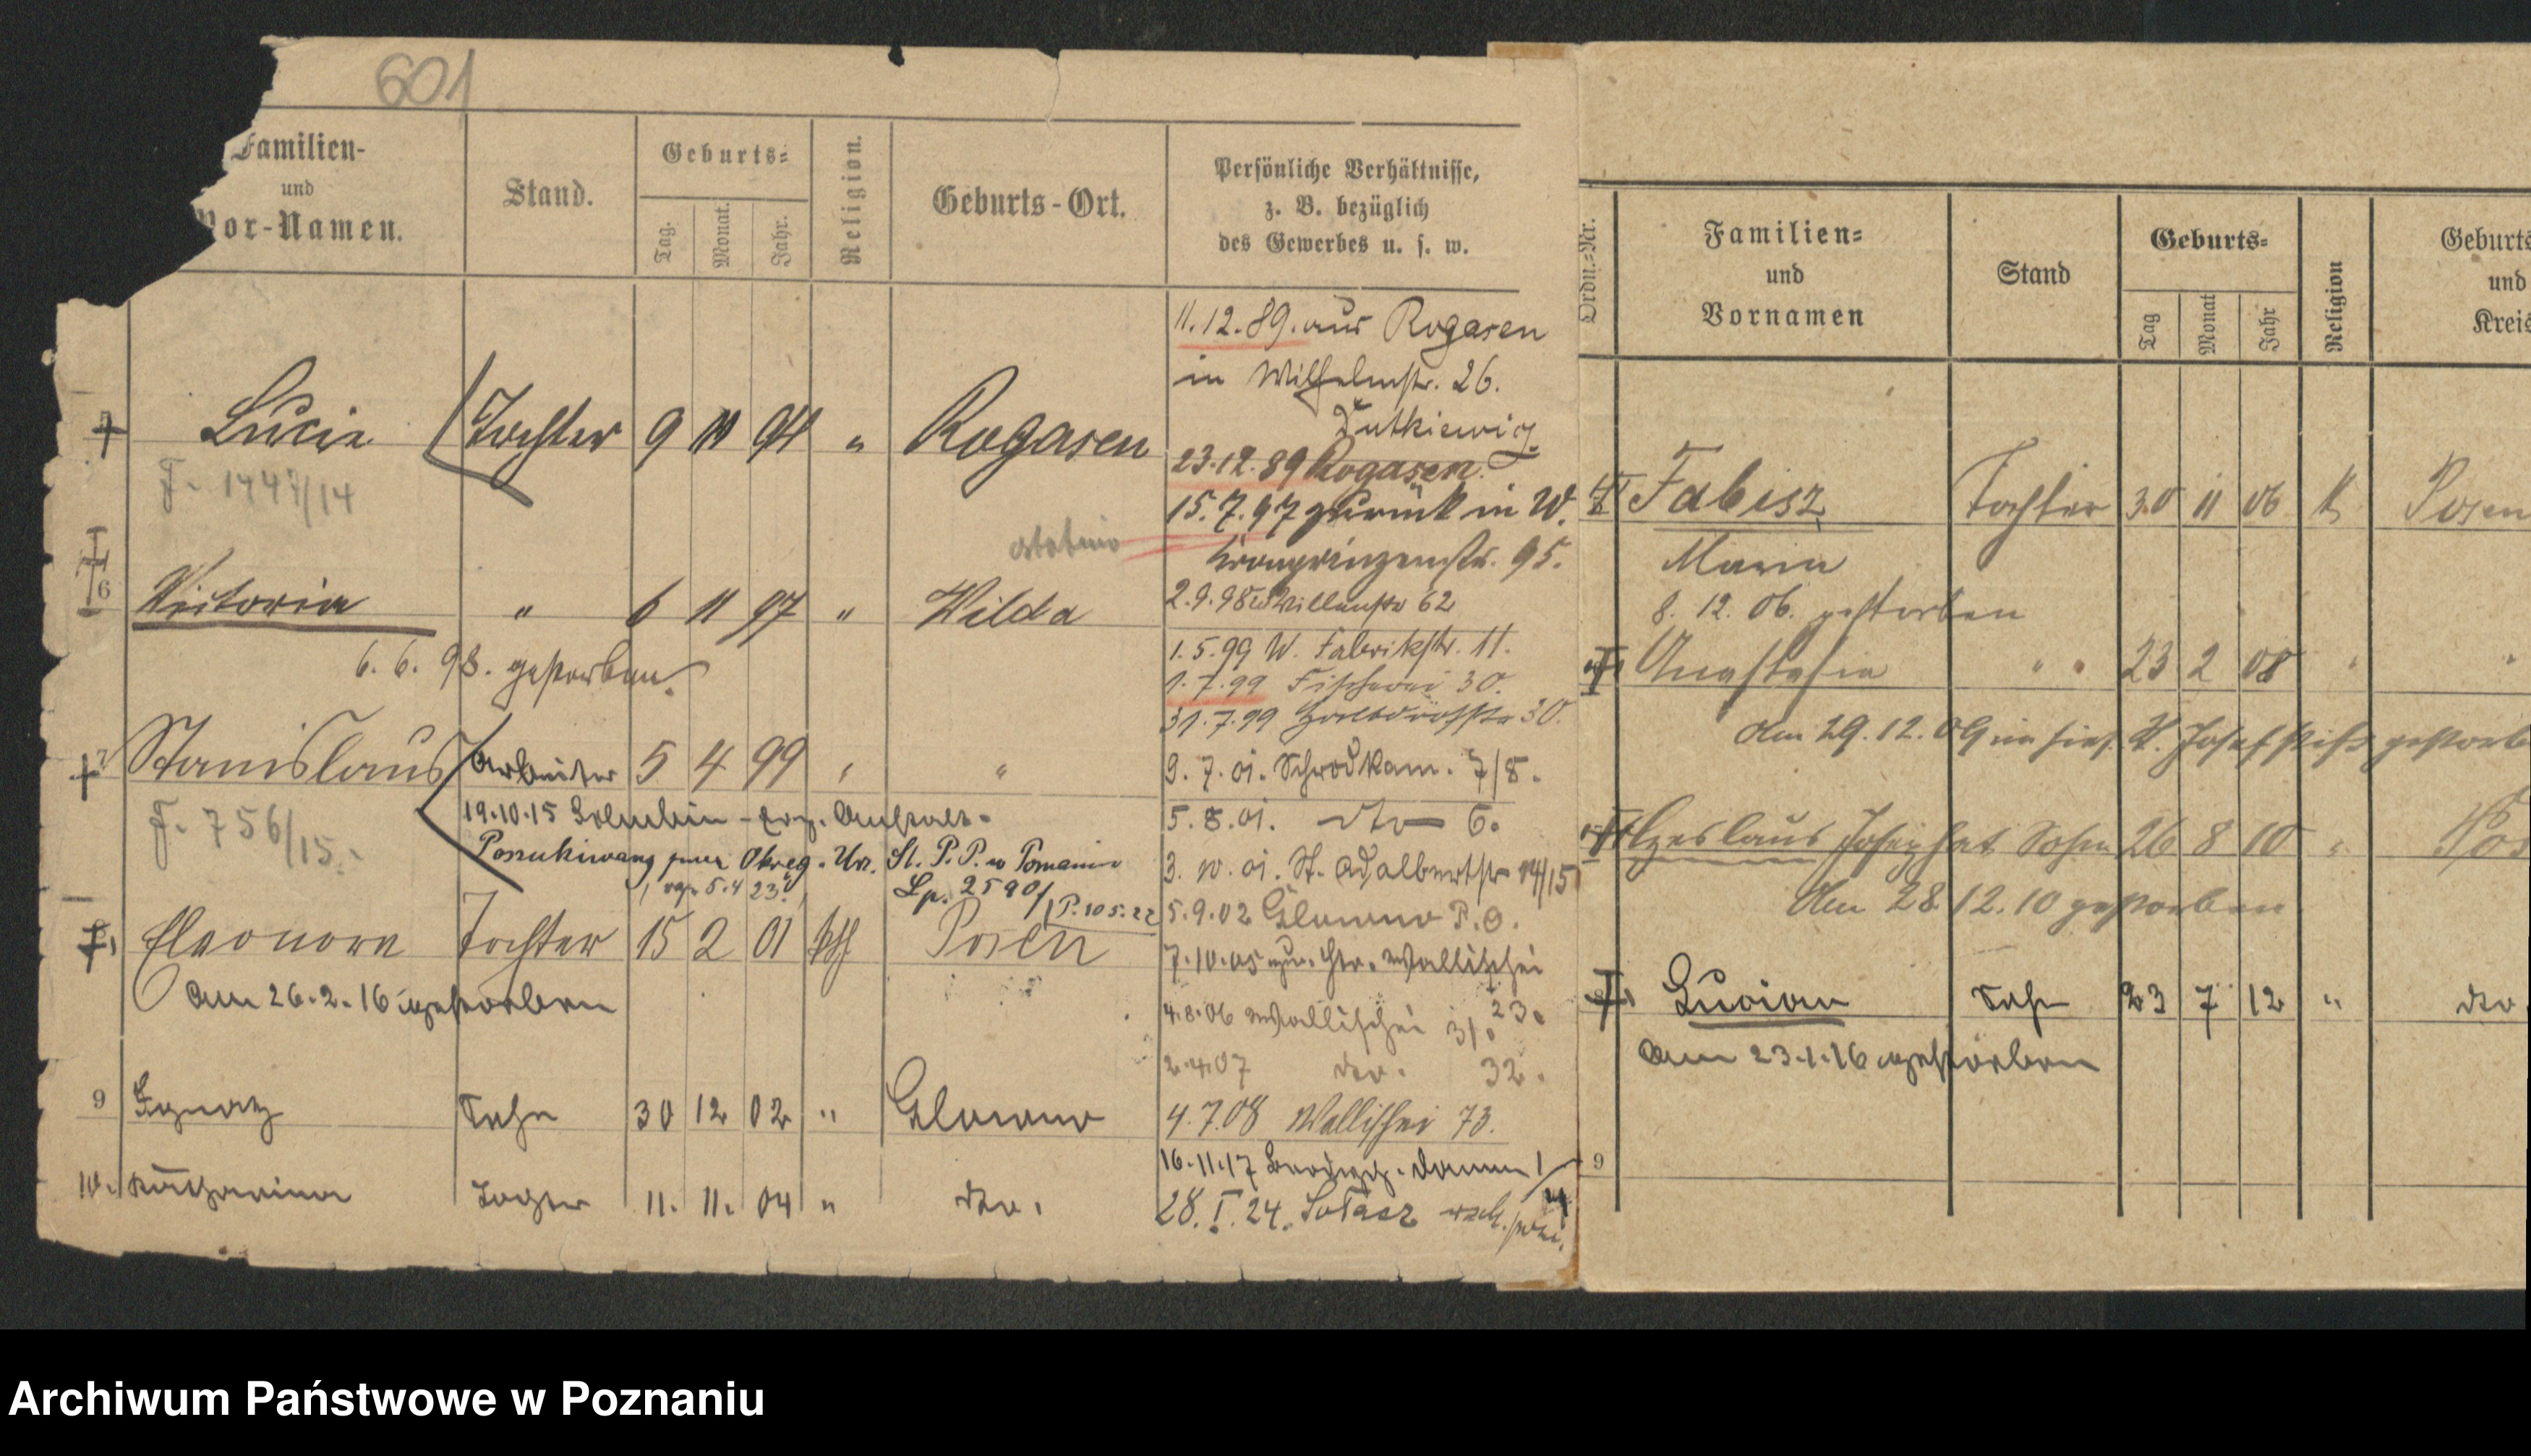 601
Familien-
und
Vor-Namen.
Stand.
Geburts-
Tag.
Monat.
Jahr.
Religion.
Geburts-Ort.
Persönliche Verhältnisse,
z. B. bezüglich
des Gewerbes u. s. w.
11.12.89. aus Rogasen
in Wilhelmstr. 26.
Dutkiewicz.
Lucia Tochter 9 11 94 " Rogasen
23.12.89 Rogasen.
F. 1447/14
15.7.97 zurück in W.
Kronprinzenstr. 95.
6 Victoria " 6 11 97 " Wilda
2.9.98 62
6.6.98. gestorben.
1.5.99 W. Fabrikstr. 11.
1.7.99 Fischerei 30.
31.7.99 30.
7 Stanislaus Arbeiter 5 4 99 " "
9.7.01. Schrodkam. 7/8.
F. 756/15.
19.10.15 - Erz. Anstalt.
5.8.01. dto 6.
Poszukiwany przez Okręg. Urz. St. P. P. w Poznaniu
3. 10. 01. St. Adalbertstr 14/15
5.4 23. Lp. 2590/
P. 10 5. 22
5.9.02 Glowno P.O.
Eleonora Tochter 15 2 01 kth Posen
7.10.05 Wallischei
am 26.2.16 gestorben
23.
4.8.06 Wallischei 31.
2.4.07 do. 32.
9 Ignatz Sohn 30 12 02 " Glowno
4.7.08 Wallischei 73.
16.11.17 1/4
10. Katharina Tochter 11. 11. 04 " do.
28. I. 24. Sołacz
Ordn.-Nr.
Familien-
und
Vornamen
Stand
Geburts-
Tag
Monat
Jahr
Religion
Geburts
und
Kreis
Fabisz Tochter 30 11 06 k Posen
Maria
8. 12. 06. gestorben
Anastasia " " 23 2 08 " "
Am 29.12.09 im hies. St. Josefstift gestorb
Czeslaus Josephat Sohn 26 8 10 " Pos
Am 28.12.10 gestorben
Lucian Sohn 23 7 12 " do.
am 23.1.16 gestorben
9
Archiwum Państwowe w Poznaniu